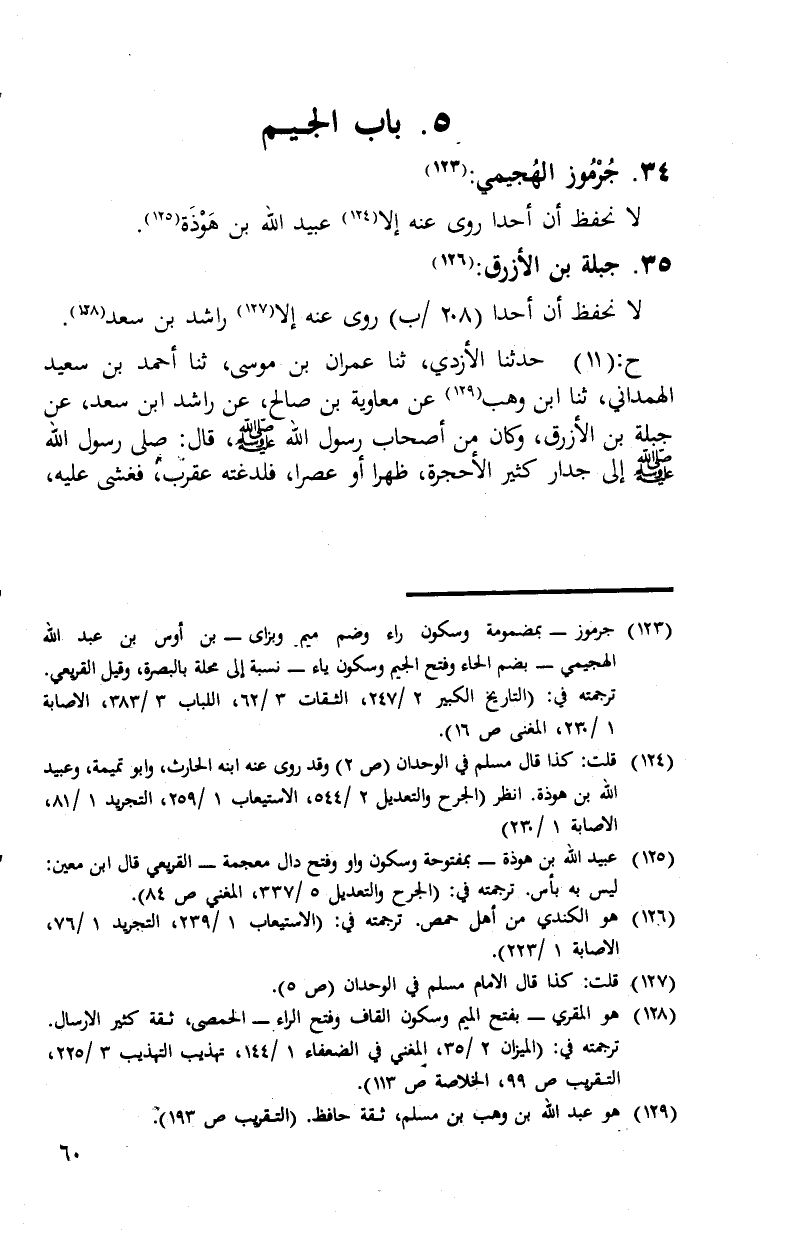 ٥. باب الجيم
٣٤. جُرْمُوز الهُجيمي:(١٢٣)
لا نحفظ أن أحدا روى عنه إلا(١٢٤) عبيد الله بن هَوْذَة(١٢٥).
٣٥. جبلة بن الأزرق:(١٢٦)
لا نحفظ أن أحدا (٢٠٨ /ب) روى عنه إلا(١٢٧) راشد بن سعد(١٢٨).
ح:(١١) حدثنا الأزدي، ثنا عمران بن موسى، ثنا أحمد بن سعيد
الهمداني، ثنا ابن وهب(١٢٩) عن معاوية بن صالح، عن راشد ابن سعد، عن
جبلة بن الأزرق، وكان من أصحاب رسول الله ﷺ، قال: صلى رسول الله
ﷺ إلى جدار كثير الأحجرة، ظهرا أو عصرا، فلدغته عقرب، فغشى عليه،
(١٢٣) جرموز ــ بمضمومة وسكون راء وضم ميم وبزاى ــ بن أوس بن عبد الله
الهجيمي ــ بضم الحاء وفتح الجيم وسكون ياء ــ نسبة إلى محلة بالبصرة، وقيل القريعي.
ترجمته في: (التاريخ الكبير ٢ /٢٤٧، الثقات ٣ /٦٢، اللباب ٣ /٣٨٣، الاصابة
١ /٢٣٠، المغنى ص ١٦).
(١٢٤) قلت: كذا قال مسلم في الوحدان (ص ٢) وقد روى عنه ابنه الحارث، وابو تميمة، وعبيد
الله بن هوذة. انظر (الجرح والتعديل ٢ /٥٤٤، الاستيعاب ١ /٢٥٩، التجريد ١ /٨١،
الاصابة ١ /٢٣٠)
(١٢٥) عبيد الله بن هوذة ــ بمفتوحة وسكون واو وفتح دال معجمة ــ القريعي قال ابن معين:
ليس به بأس. ترجمته في: (الجرح والتعديل ٥ /٣٣٧، المغني ص ٨٤).
(١٢٦) هو الكندي من أهل حمص. ترجمته في: (الاستيعاب ١ /٢٣٩، التجريد ١ /٧٦،
الاصابة ١ /٢٢٣).
(١٢٧) قلت: كذا قال الامام مسلم في الوحدان (ص ٥).
(١٢٨) هو المقري ــ بفتح الميم وسكون القاف وفتح الراء ــ الحمصى، ثقة كثير الارسال.
ترجمته في: (الميزان ٢ /٣٥، المغني في الضعفاء ١ /١٤٤، تهذيب التهذيب ٣ /٢٢٥،
التقريب ص ٩٩، الخلاصة ص ١١٣).
(١٢٩) هو عبد الله بن وهب بن مسلم، ثقة حافظ. (التقريب ص ١٩٣).
٦٠